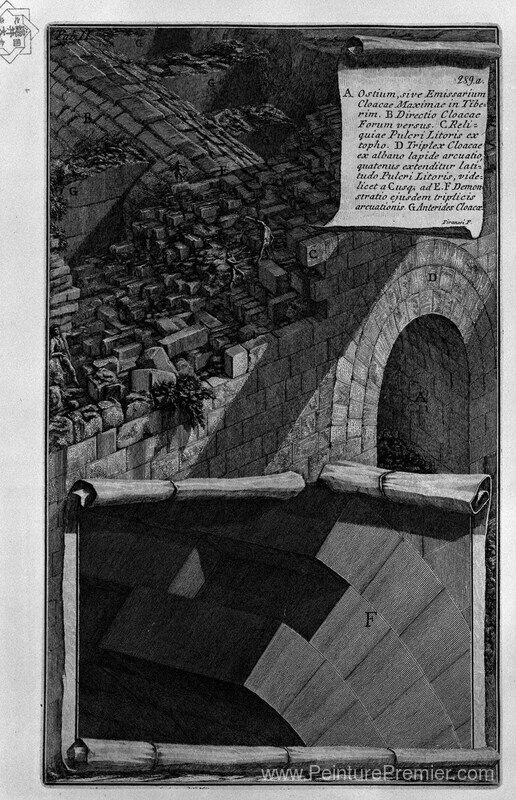 Tab. II.
G
G
B
G
289.a
A. Ostium, sive Emissarium
Cloacae Maximae in Tibe-
rim. B Directio Cloacae
Forum versus. C. Reli-
quiae Pulcri Litoris ex
topho. D Triplex Cloacae
ex albano lapide arcuatio,
quatenus extenditur lati-
tudo Pulcri Litoris, vide-
licet a C usq. ad E. F Demon
stratio ejusdem triplicis
arcuationis G Anterides Cloacae
Piranesi F.
C
D
A
F
www.PeinturePremier.com